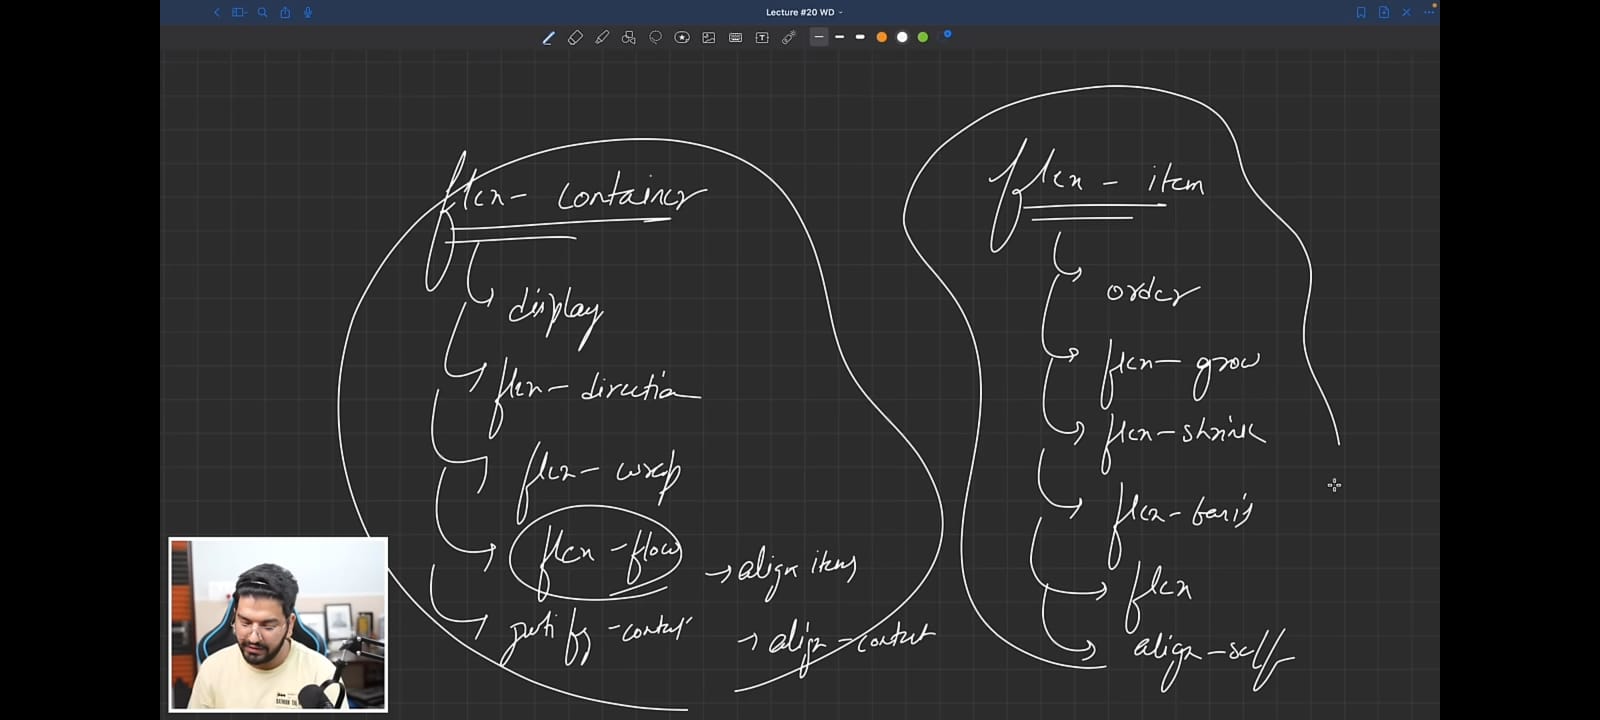 Lecture #20 WD
flex- container
display
flex- direction
flex- wrap
flex -flow
→ align items
justify -content
→ align -content
flex - item
order
flex- grow
flex-shrink
flex-basis
flex
align-self